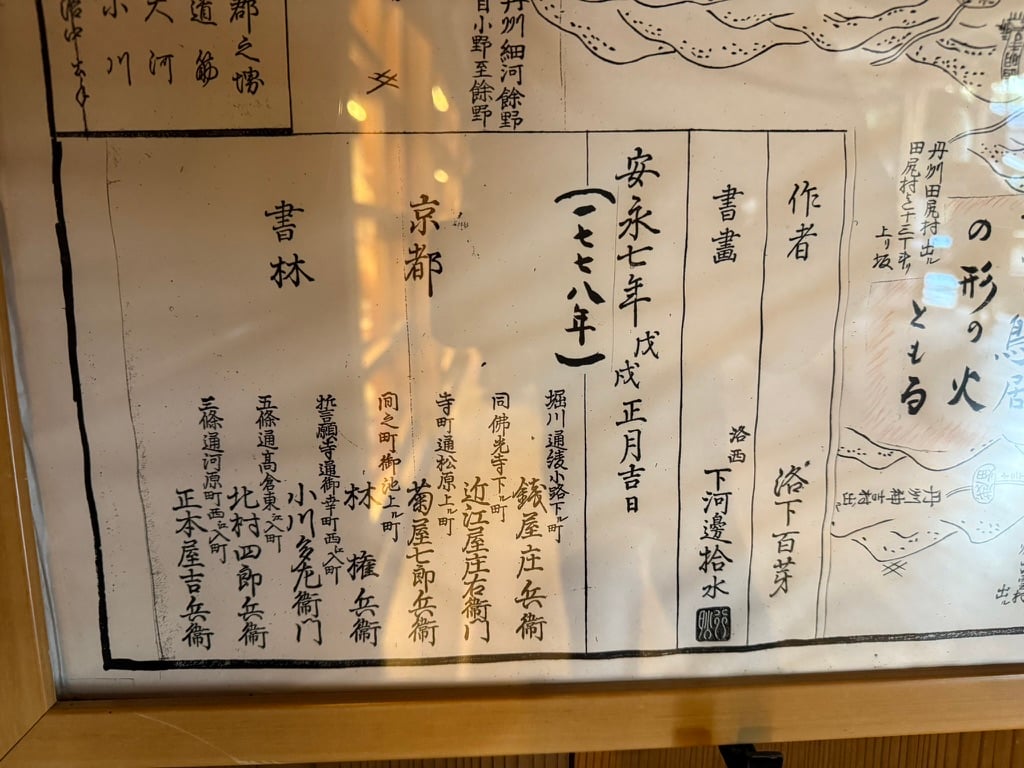 の形の火
ともる
鳥居
丹州田尻村出ル
上リ坂
丹州細河餘野
自小野至餘野
郡之堺
道筋
大河
小川
作者
洛下百芽
書畫
洛西
下河邊拾水
安永七年
戊戌
正月吉日
(一七七八年)
京都
書林
堀川通綾小路下ル町
錢屋庄兵衞
同佛光寺下ル町
近江屋庄右衞門
寺町通松原上ル町
菊屋七郎兵衞
間之町御池上ル町
林權兵衞
誓願寺通御幸町西ヘ入町
小川多左衞門
五條通高倉東ヘ入町
北村四郎兵衞
三條通河原町西ヘ入町
正本屋吉兵衞